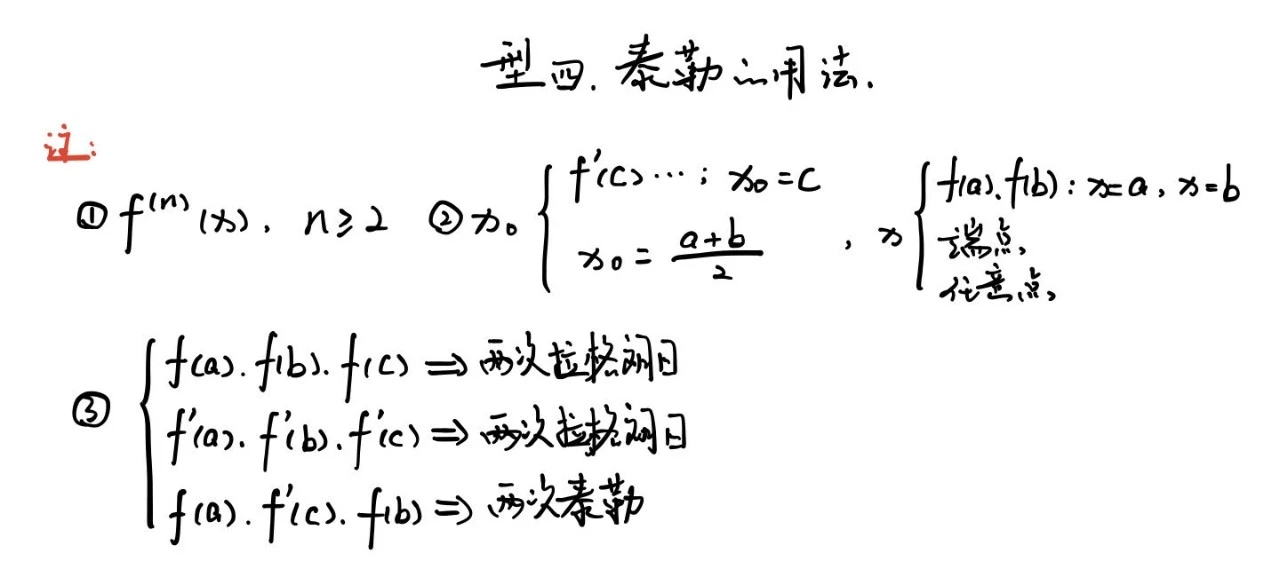 型四. 泰勒的用法.
注:
① f⁽ⁿ⁾(x), n≥2 ② x₀ { f'(c)…; x₀=c , x { f(a).f(b): x=a, x=b
x₀ = (a+b)/2 端点,
任意点,
③ { f(a). f(b). f(c) ⇒ 两次拉格朗日
f'(a). f'(b). f'(c) ⇒ 两次拉格朗日
f(a). f'(c). f(b) ⇒ 两次泰勒